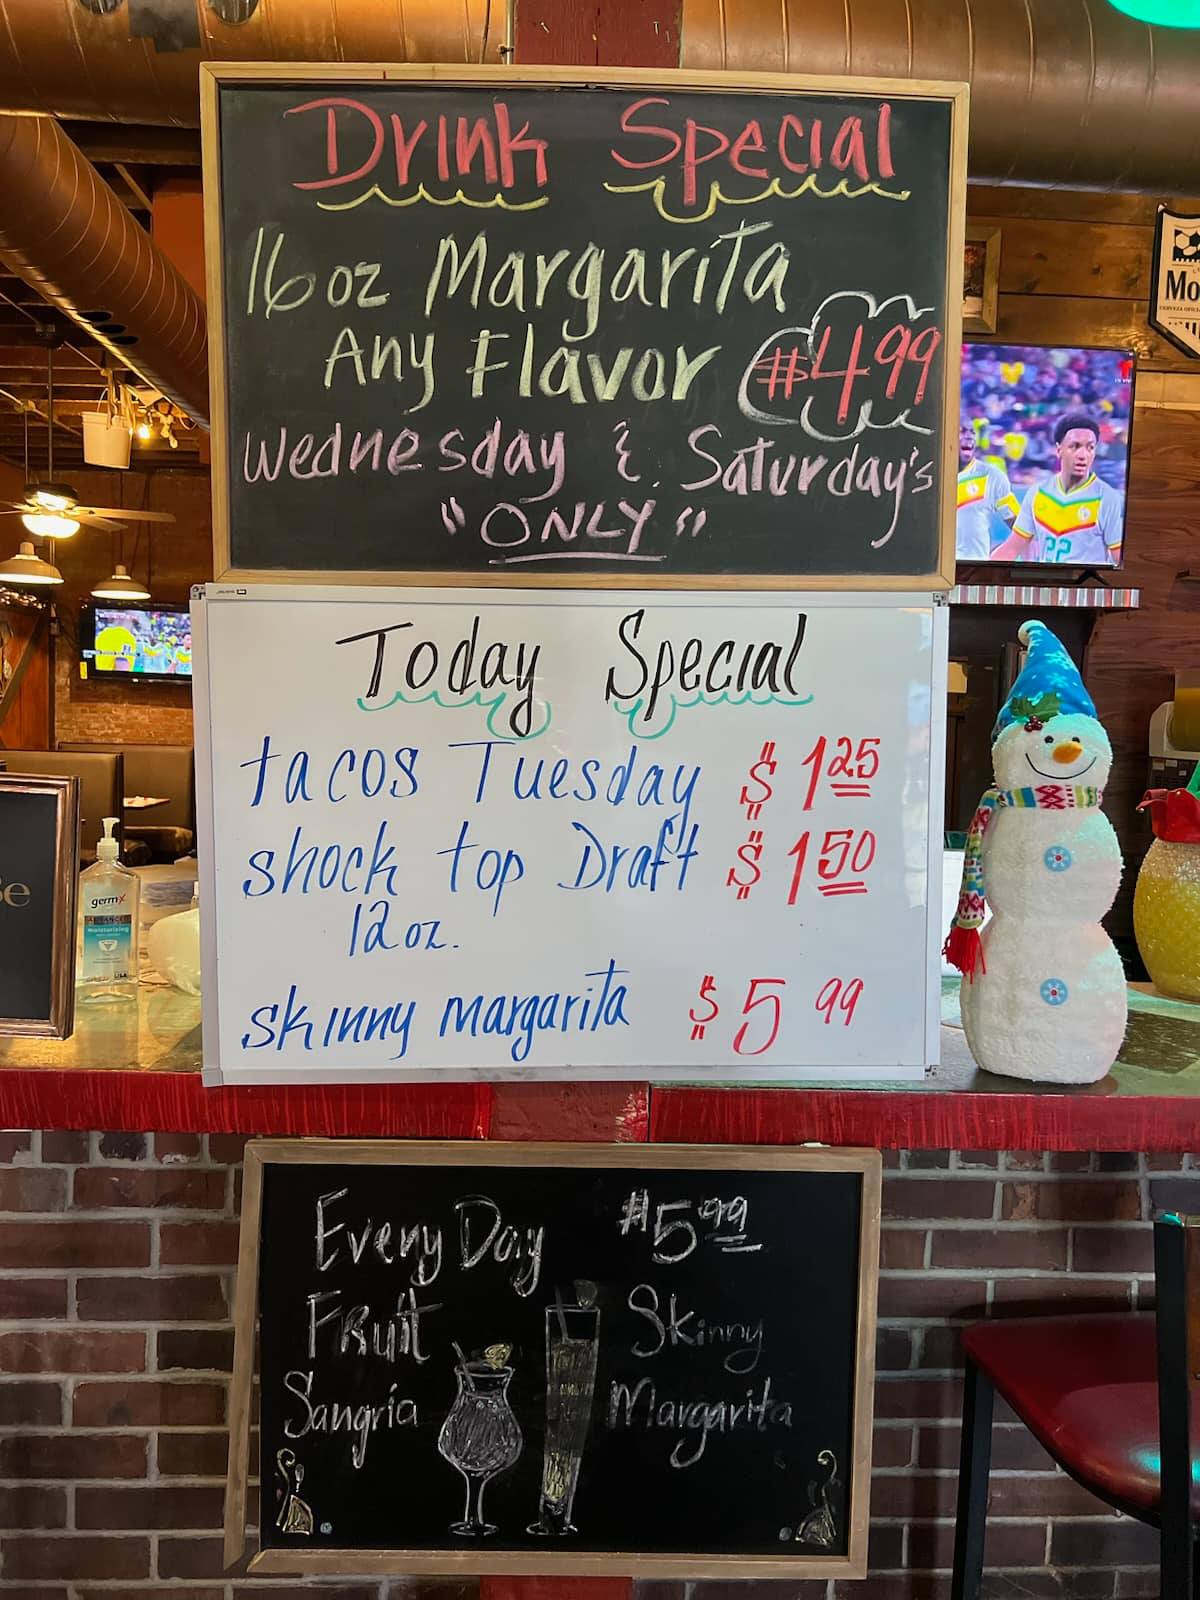 Drink Special
16 oz Margarita
Any Flavor $4.99
Wednesday & Saturday's
"ONLY"
Today Special
tacos Tuesday $1.25
shock top Draft $1.50
12 oz.
skinny margarita $5.99
Every Day $5.99
Fruit Skinny
Sangria Margarita
germx
ADVANCED
Moisturizing
22
Mo
Be